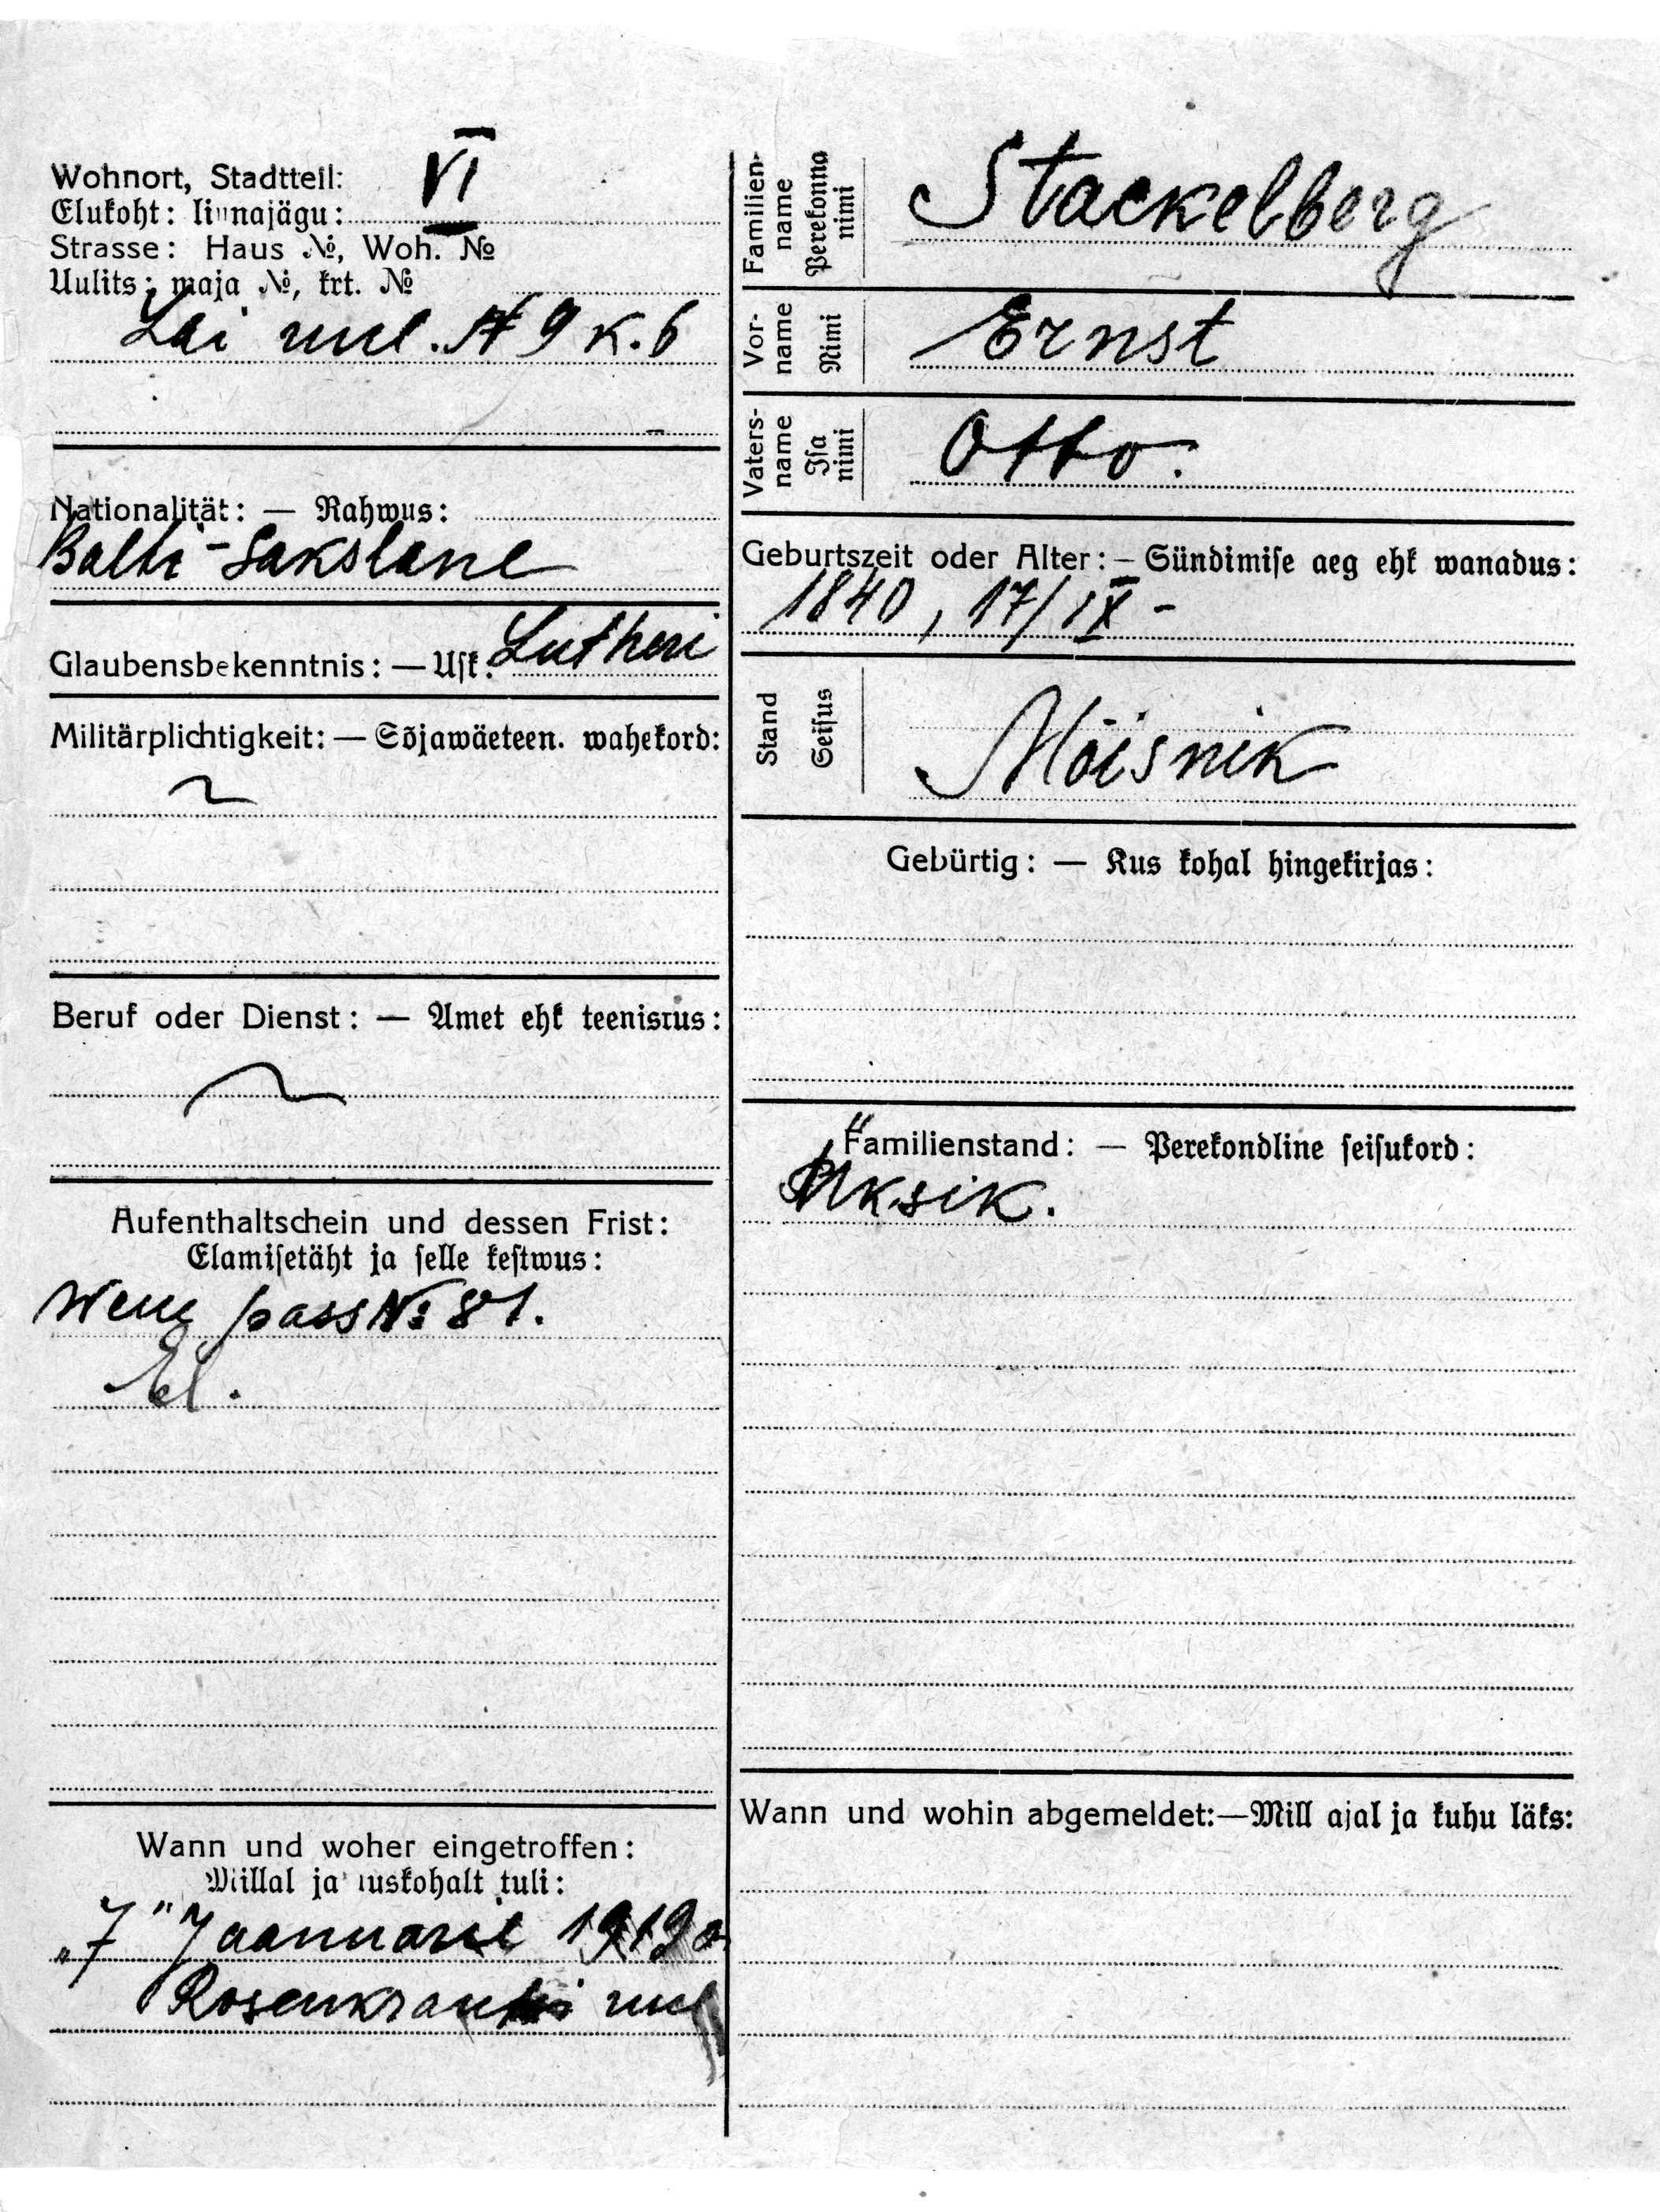 Wohnort, Stadtteil: VI
Elukoht: linnajägu:
Strasse: Haus №, Woh. №
Uulits: maja №, krt. №
Lai uul. № 9 K. 6
Nationalität: — Rahwus:
Balti-Sakslane
Glaubensbekenntnis: — Usk: Lutheri
Militärplichtigkeit: — Sõjawäeteen. wahekord:
Beruf oder Dienst: — Amet ehk teenistus:
Aufenthaltschein und dessen Frist:
Elamisetäht ja selle kestwus:
Wene pass № 81.
El.
Wann und woher eingetroffen:
Millal ja kuskohalt tuli:
„7" Jaanuaril 1919 a.
Rosenkrantsi uul
Familienname Perekonna nimi Stackelberg
Vorname Nimi Ernst
Vatersname Isa nimi Otto.
Geburtszeit oder Alter: — Sündimise aeg ehk wanadus:
1840, 17/IX -
Stand Seisus Mõisnik
Gebürtig: — Kus kohal hingekirjas:
Familienstand: — Perekondline seisukord:
Üksik.
Wann und wohin abgemeldet:—Mill ajal ja kuhu läks: